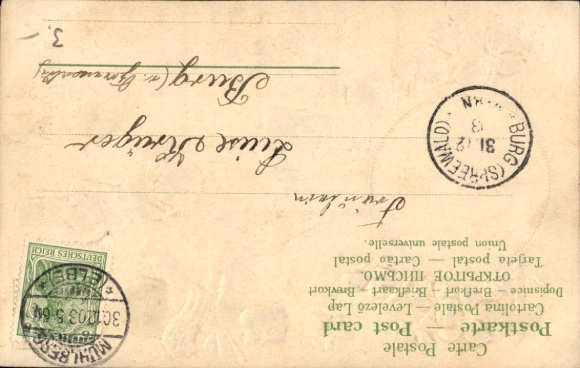 Carte Postale
Postkarte — Post card
Cartolina Postale — Levelező Lap
Dopisnice — Brefkort — Briefkaart — Brevkort
ОТКРЫТОЕ ПИСЬМО.
Tarjeta postal — Cartão postal
Union postale universelle.
DEUTSCHES REICH
MÜHLBERG
30.12.03.5-6N
* (ELBE) *
BURG (SPREEWALD)
31 12
Fräulein
Luise Krüger
Burg
3.-